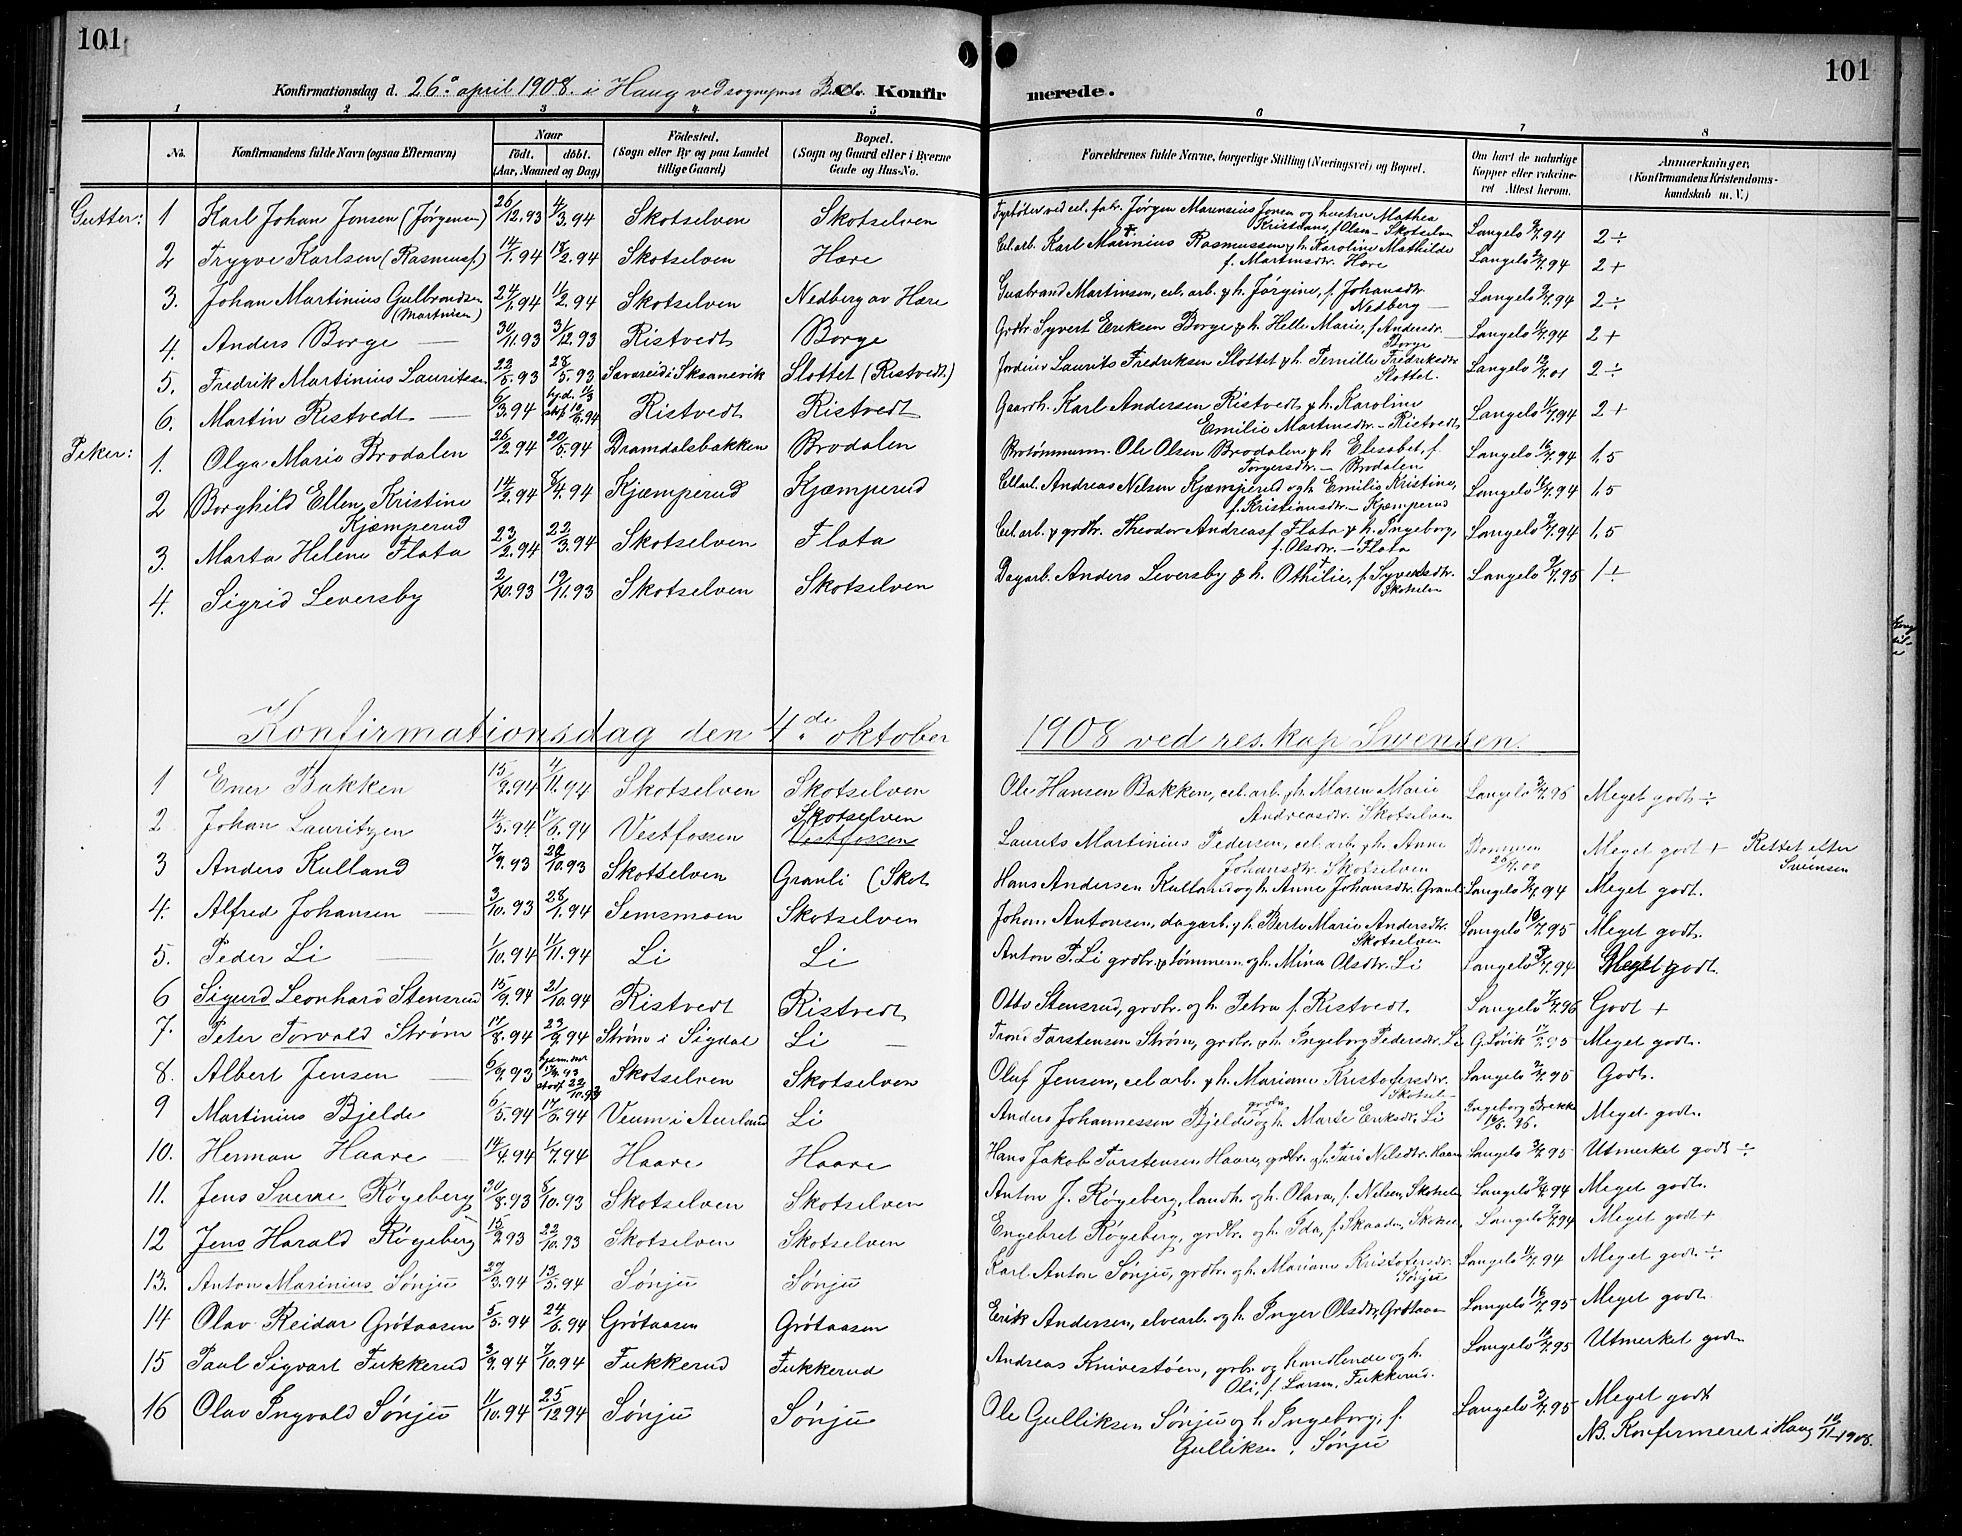 101
101
Konfirmationsdag d. 26° april 1908. i Haug ved sogneprest C. Konfirmerede.
1 2 3 4 5 6 7 8
No.
Konfirmandens fulde Navn (ogsaa Efternavn)
Naar
födt. döbt.
(Aar, Maaned og Dag)
Födested.
(Sogn eller By og paa Landet tillige Gaard)
Bopæl.
(Sogn og Gaard eller i Byerne Gade og Hus-No.
Forældrenes fulde Navne, borgerlige Stilling (Næringsvei) og Bopæl.
Om havt de naturlige Kopper eller vakcineret. Attest herom.
Anmærkninger,
(Konfirmandens Kristendomskundskab m. V.)
Gutter: 1 Karl Johan Jensen (Jørgensen) 26/12.93 4/3.94 Skotselven Skotselven Fyrbøter ved cel. fabr. Jørgen Marensius Jensen og hustru Mathea Kristiane, f. Olsen - Skotselven Langelo 9/7.94 2 ÷
2 Trygve Karlsen (Rasmusf.) 14/1.94 18/2.94 Skotselven Hære Cel. arb. Karl Marinius Rasmussen & h. Karoline Mathilde f. Martinsdtr. Hære Langelo 2/7.94 2 +
3. Johan Martinius Gulbrandsen (Martinsen) 24/1.94 11/2.94 Skotselven Nedberg av Hære Gulbrand Martinsen, cel. arb. & h. Jørgine, f. Johansdtr. Nedberg — Langelo 2/7.94 2 ÷
4. Anders Borge — 30/11.93 31/12.93 Ristvedt Borge Grdbr Syvert Eriksen Borge & h. Helle Marie, f. Andersdr. Borge — Langelo 11/7.94 2 +
5. Fredrik Martinius Lauritssen 22/5.93 28/5.93 Sævareid i Skaanevik Slottet (Ristvedt) Jordeier Laurits Fredriksen Slottet & h. Pernille Fredriksdtr. Slottet. Langelo 12/7.01 2 ÷
6. Martin Ristvedt — 6/3.94 Ristvedt Ristvedt Gaardb. Karl Andersen Ristvedt & h. Karoline Emilie Martinsdtr. - Ristvedt Langelo 11/7.94 2 +
Piker: 1. Olga Marie Brodalen 26/2.94 20/5.94 Dramdalsbakken Brodalen Brotømmerm. Ole Olsen Brodalen & h. Elisabet, f. Torgersdtr. - Brodalen Langelo 16/7.94 1,5
2 Borghild Ellen Kristine Kjæmperud 14/2.94 8/4.94 Kjæmperud Kjæmperud Cel. arb. Andreas Nilsen Kjæmperud og h. Emilie Kristine, f. Kristiansdtr. - Kjæmperud Langelo 16/7.94 1,5
3. Marta Helene Flata 23/2.94 22/3.94 Skotselven Flata Cel. arb. & grdbr. Theodor Andreasf Flata & h. Ingeborg, f. Olsdtr. - Flata Langelo 9/7.94 1,5
4. Sigrid Leversby 2/10.93 19/11.93 Skotselven Skotselven Dagarb. Anders Leversby & h. Othilie, f. Syvertsdtr. Skotselven Langelo 9/7.95 1 ÷
Konfirmationsdag den 4de oktober 1908 ved res. kap Svensen.
1 Ener Bakken 15/9.94 11.94 Skotselven Skotselven Ole Hansen Bakken, cel. arb. & h. Maren Marie Andreasdr. i Skotselven Langelo 3/7.95 Meget godt ÷
2 Johan Lauritzen 11/5.94 17/6.94 Vestfossen Skotselven Vestfossen Laurits Martinius Pedersen, cel. arb. & h. Anne Johansdtr. Skotselven Meget godt + Rettet efter
3 Anders Kulland 7/9.93 20/10.93 Skotselven Granli (Skot Hans Andersen Kulland og h. Anne Johansdtr. Granli Langelo 2/7.94 Meget godt.
4. Alfred Johansen — 3/10.93 28/1.94 Semsmoen Skotselven Johan Antonsen, dagarb. & h. Berte Marie Andersdtr. Skotselven Langelo 10/7.95 Meget godt.
5. Peder Li — 1/10.94 11/11.94 Li Li Anton P. Li grdbr. & tømmerm. og h. Mina Olsdtr. Li Langelo 7.94 Meget godt.
6 Sigurd Leonhard Stensrud 15/9.94 21/10.94 Ristvedt Ristvedt Otto Stensrud, grdbr. og h. Petra f. Ristvedt. Langelo 7/7.96 Godt +
7. Peter Torvald Strøm 17/8.94 23/9.94 Strøm i Sigdal Li — Trond Torstensen Strøm, grdbr. & h. Ingeborg Pedersdtr. Li Meget godt.
8. Albert Jensen — 6/9.93 Skotselven Skotselven Oluf Jensen, cel. arb. & h. Mariane Kristofersdtr. Skotsel- Langelo 2/7.95 Godt.
9 Martinius Bjelde 6/5.94 17/5.94 Veum i Aurland Li Anders Johannessen Bjelde grdbr og h. Marte Eriksdtr. Li Ingeborg Brekke 96. Meget godt.
10. Herman Haare — 14/4.94 1/7.94 Haare Haare Hans Jakob Torstensen Haare, grdbr. og h. Turi Nelsdtr. Haare Langelo 3/7.95 Utmerket godt ÷
11. Jens Sverre Røgeberg 20/8.93 8/10.93 Skotselven Skotselven Anton J. Røgeberg, landh. og h. Olava, f. Nelsen, Skotselv Langelo 2/7.94 Meget godt.
12 Jens Harald Røgeberg 15/9.93 22/10.93 Skotselven Skotselven Engebret Røgeberg, grdbr. og h. Ida, f. Skaaden, Skotsel. Langelo 2/7.94 Meget godt +
13. Anton Marinius Sønju 29/3.94 13/5.94 Sønju Sønju Karl Anton Sønju, grdbr. og h. Mariane Kristofersdr. Sønju Langelo 11/7.94 Meget godt. ÷
14 Olav Reidar Grøtaasen 5/5.94 24/6.94 Grøtaasen Grøtaasen Erik Andersen, elvearb. og h. Inger Olsdtr. Grøtaasen Langelo 16/7.95 Meget godt.
15 Paul Sigvart Fukkerud 3/9.94 7/10.94 Fukkerud Fukkerud Andreas Knivestøen, grbr. og handlende og h. Oli, f. Larsen, Fukkerud. Langelo 16/7.95 Utmerket godt.
16 Olav Ingvald Sønju 11/10.94 25/12 94 Sønju Sønju Ole Gulliksen Sønju og h. Ingeborg, f. Gulliksen, Sønju Langelo 2/7.95 Meget godt
NB. Konfirmeret i Haug 10/11-1908.